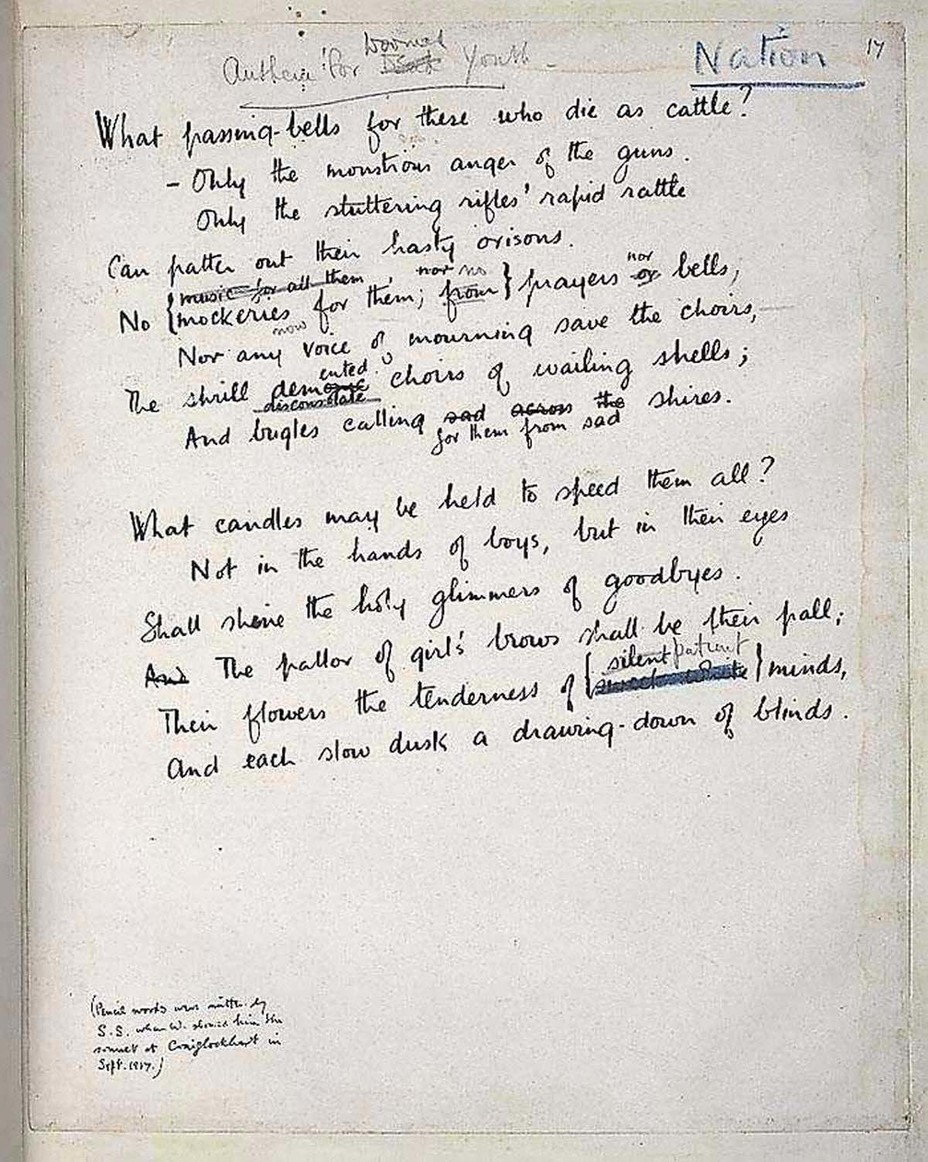 Anthem for Doomed Dead Youth
Nation
17
What passing-bells for these who die as cattle?
– Only the monstrous anger of the guns.
Only the stuttering rifles' rapid rattle
Can patter out their hasty orisons.
music for all them nor no nor
No { mockeries for them; from } prayers or bells,
now
Nor any voice of mourning save the choirs,
ented
The shrill demonic choirs of wailing shells;
disconsolate
And bugles calling sad across the shires.
for them from sad
What candles may be held to speed them all?
Not in the hands of boys, but in their eyes
Shall shine the holy glimmers of goodbyes.
And The pallor of girl's brows shall be their pall;
silent patient
Their flowers the tenderness of { sweet white } minds,
And each slow dusk a drawing-down of blinds.
(Pencil words were written by
S.S. when W. showed him the
sonnet at Craiglockhart in
Sept. 1917.)